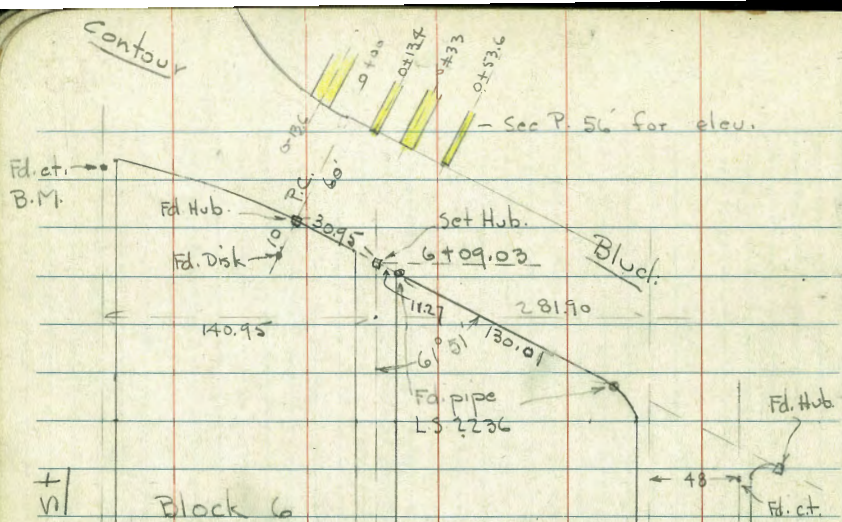 Contour
0+00
0+13.4
0+33
0+53.6
- See P. 56 for elev.
Fd. ct.
B.M.
P.C.
60'
Fd. Hub.
30.95
10
Fd. Disk
Set Hub.
6+09.03
Blvd.
11.27
281.90
140.95
61° 51'
130.01
Fd. pipe
L.S. 2236
Fd. Hub
48
Fd. c.t.
St
Block 6